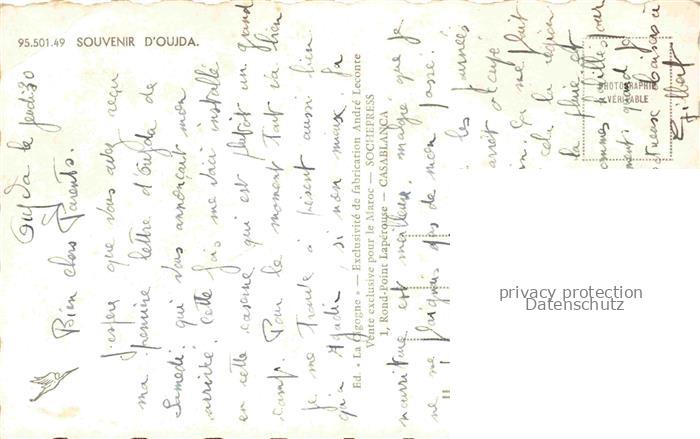 95.501.49 SOUVENIR D'OUJDA.
Oujda le jeudi 30
Bien chers Parents.
J'espère que vous avez reçu
ma première lettre d'Oujda de
Samedi qui vous annonçait mon
arrivée. Cette fois me voici installé
en cette caserne qui est plutôt un grand
camp. Pour le moment tout va bien
je me trouve à présent aussi bien
qu'à Agadir si non mieux. La
nourriture est meilleure. malgré que je
ne me plaignais pas de mon passé.
les journées
arrêt
Ça me plait
cela la région
la pluie et
quand je
baisers à
Gilbert
Ed. « La Cigogne » — Exclusivité de fabrication André Leconte
Vente exclusive pour le Maroc — SOCHEPRESS
1, Rond-Point Lapérouse — CASABLANCA
PHOTOGRAPHIE
VÉRITABLE
privacy protection
Datenschutz